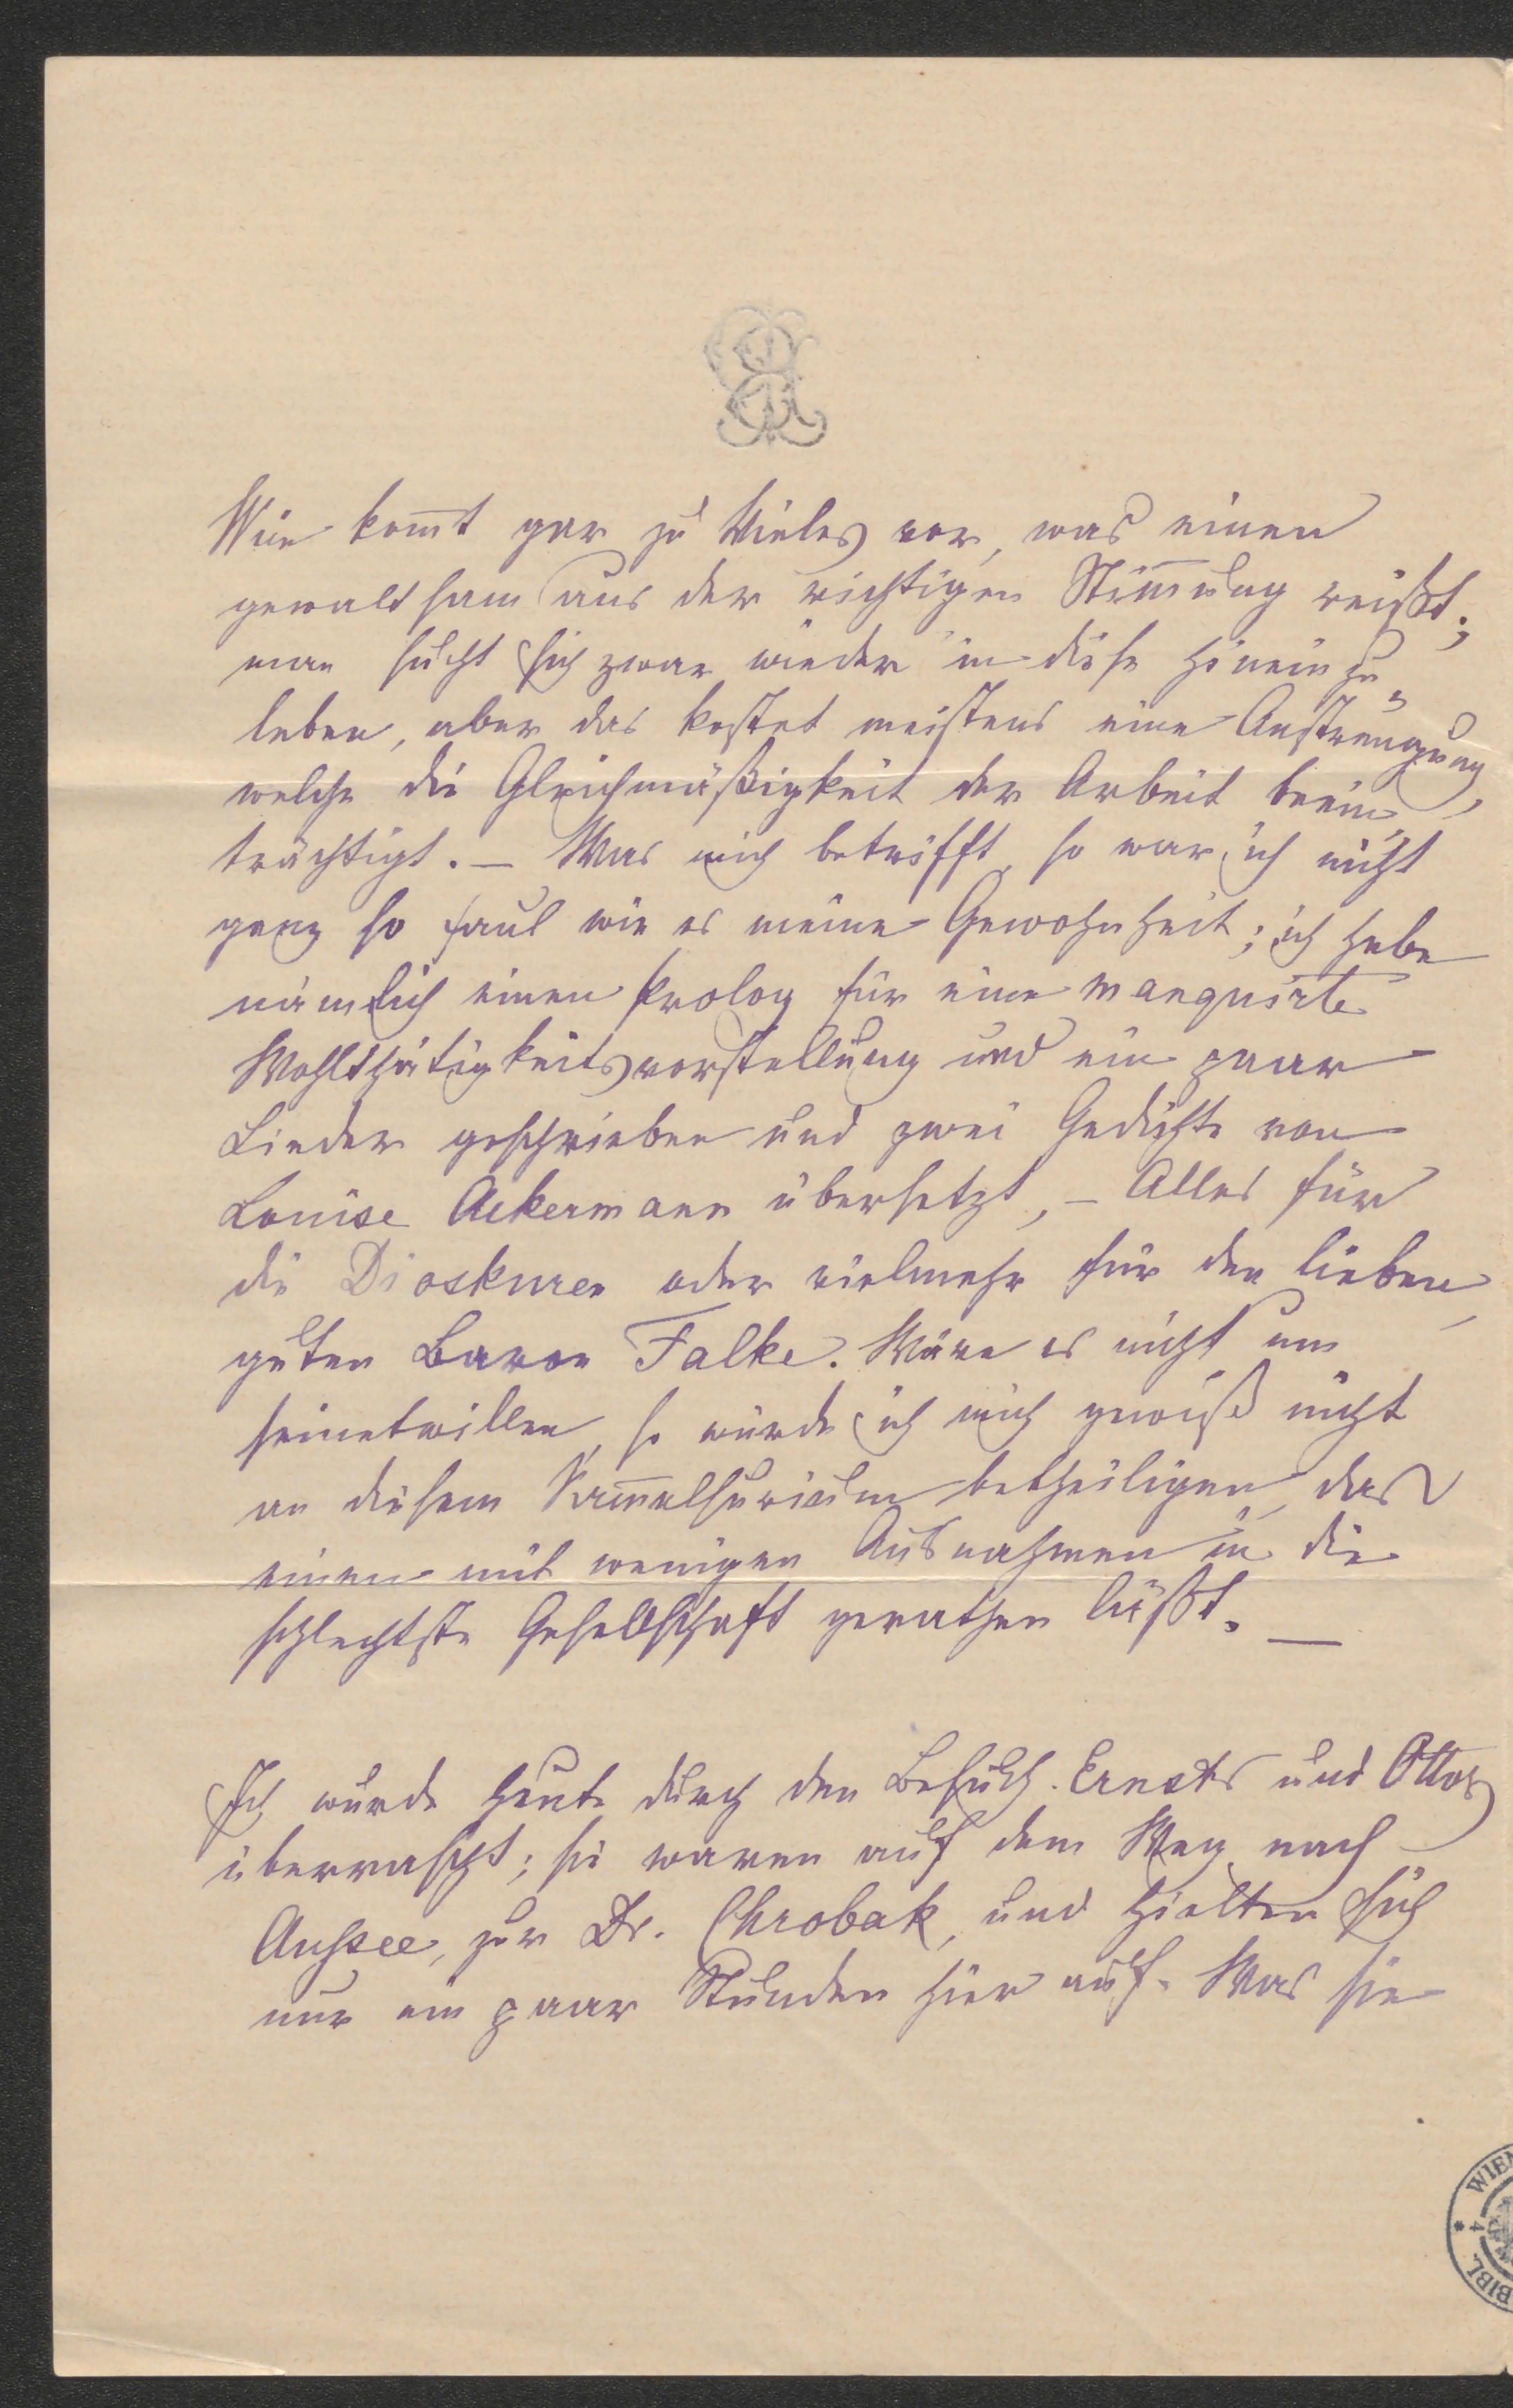 Wie kom̄t gar zu Vieles vor, was einen
gewaltsam aus der richtigen Stim̄ung reißt;
man sucht sich zwar wieder in diese hineinzu
leben, aber das kostet meistens eine Anstrengung,
welche die Gleichmäßigkeit der Arbeit beein
trächtigt. – Was mich betrifft, so war ich nicht
ganz so faul wie es meine Gewohnheit; ich habe
nämlich einen Prolog für eine manquirte
Wohlthätigkeitsvorstellung und ein paar
Lieder geschrieben und zwei Gedichte von
Louise Ackermann übersetzt, – Alles für
die Dioskuren oder vielmehr für den lieben,
guten Baron Falke. Wäre es nicht um
seinetwillen, so würde ich mich gewiß nicht
an diesem Sam̄elsurium betheiligen, das
einen mit wenigen Ausnahmen in die
schlechtste Gesellschaft gerathen läßt. —
Ich wurde heute durch den Besuch Ernsts und Ottos
überrascht; sie waren auf dem Weg nach
Aussee, zur Dr. Chrobak, und hielten sich
nur ein paar Stunden hier auf. Was sie
WIEN
BIBL.